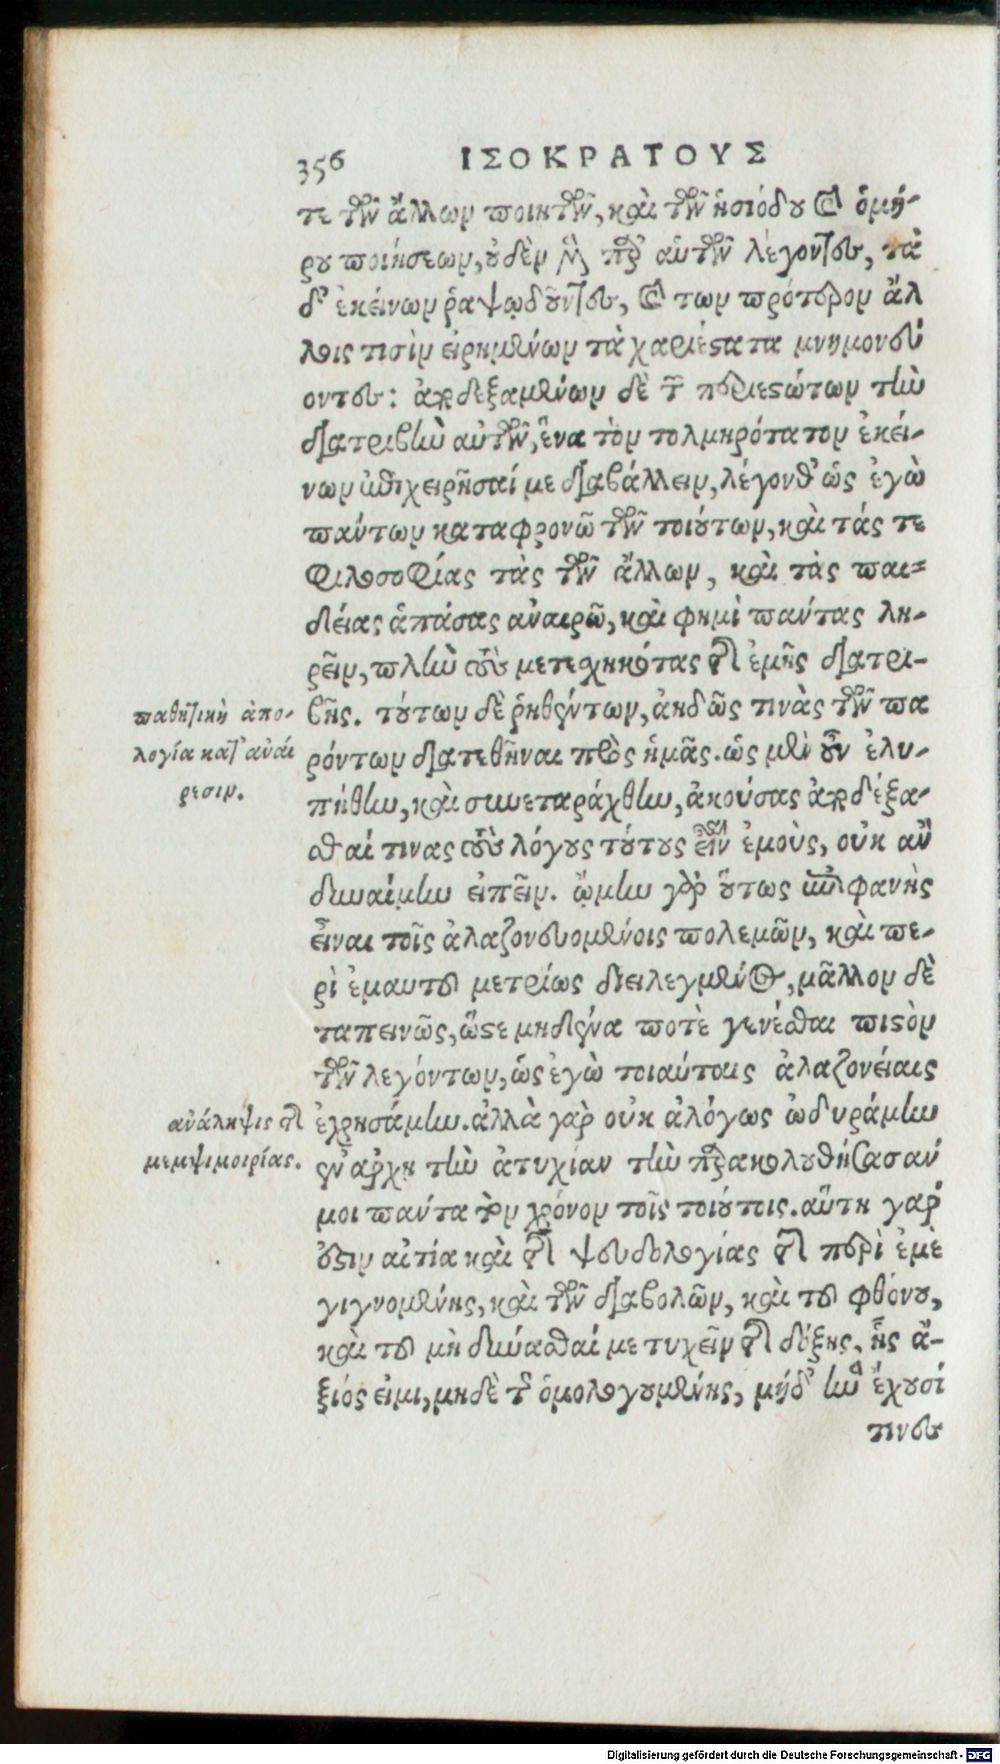 356 ΙΣΟΚΡΑΤΟΥΣ
τε τῶν ἄλλων ποιητῶν, καὶ τῶν ἡσιόδου καὶ ὁμή-
ρου ποιήσεων, οὐδὲν μὲν παρ' αὑτῶν λέγοντες, τὰ
δ' ἐκείνων ῥαψῳδοῦντες, καὶ των πρότερον ἄλ
λοις τισὶν εἰρημένων τὰ χαριέστατα μνημονεύ
οντες: ἀποδεξαμένων δὲ τῶν περιεστώτων τὴν
διατριβὴν αὐτῶν, ἕνα τὸν τολμηρότατον ἐκεί-
νων ἐπιχειρῆσαί με διαβάλλειν, λέγονθ' ὡς ἐγὼ
πάντων καταφρονῶ τῶν τοιούτων, καὶ τάς τε
φιλοσοφίας τὰς τῶν ἄλλων, καὶ τὰς παι-
δείας ἁπάσας ἀναιρῶ, καὶ φημὶ πάντας λη-
ρεῖν, πλὴν τοὺς μετεχηκότας τῆς ἐμῆς διατρι-
βῆς. τούτων δὲ ῥηθέντων, ἀηδῶς τινὰς τῶν πα
ρόντων διατεθῆναι πρὸς ἡμᾶς. ὡς μὲν οὖν ἐλυ-
πήθην, καὶ συνεταράχθην, ἀκούσας ἀποδέξα-
σθαί τινας τοὺς λόγους τούτους εἶναι ἐμοὺς, οὐκ ἂν
δυναίμην εἰπεῖν. ᾤμην γὰρ οὕτως ἐπιφανὴς
εἶναι τοῖς ἀλαζονευομένοις πολεμῶν, καὶ πε-
ρὶ ἐμαυτοῦ μετρίως διειλεγμένος, μᾶλλον δὲ
ταπεινῶς, ὥστε μηδένα ποτὲ γενέσθαι πιστὸν
τῶν λεγόντων, ὡς ἐγὼ τοιαύταις ἀλαζονείαις
ἐχρησάμην. ἀλλὰ γὰρ οὐκ ἀλόγως ὠδυράμην
ἐν ἀρχῇ τὴν ἀτυχίαν τὴν παρακολουθήσασάν
μοι πάντα τὸν χρόνον τοῖς τοιούτοις. αὕτη γάρ
ἐστιν αἰτία καὶ τῆς ψευδολογίας τῆς περὶ ἐμὲ
γιγνομένης, καὶ τῶν διαβολῶν, καὶ τοῦ φθόνου,
καὶ τοῦ μὴ δύνασθαί με τυχεῖν τῆς δόξης, ἧς ἄ-
ξιός εἰμι, μηδὲ τῆς ὁμολογουμένης, μήδ' ἣν ἔχουσί
τινες
παθητικὴ ἀπο-
λογία κατ' ἀναί
ρεσιν.
ἀνάληψις τῆς
μεμψιμοιρίας.
Digitalisierung gefördert durch die Deutsche Forschungsgemeinschaft - DFG